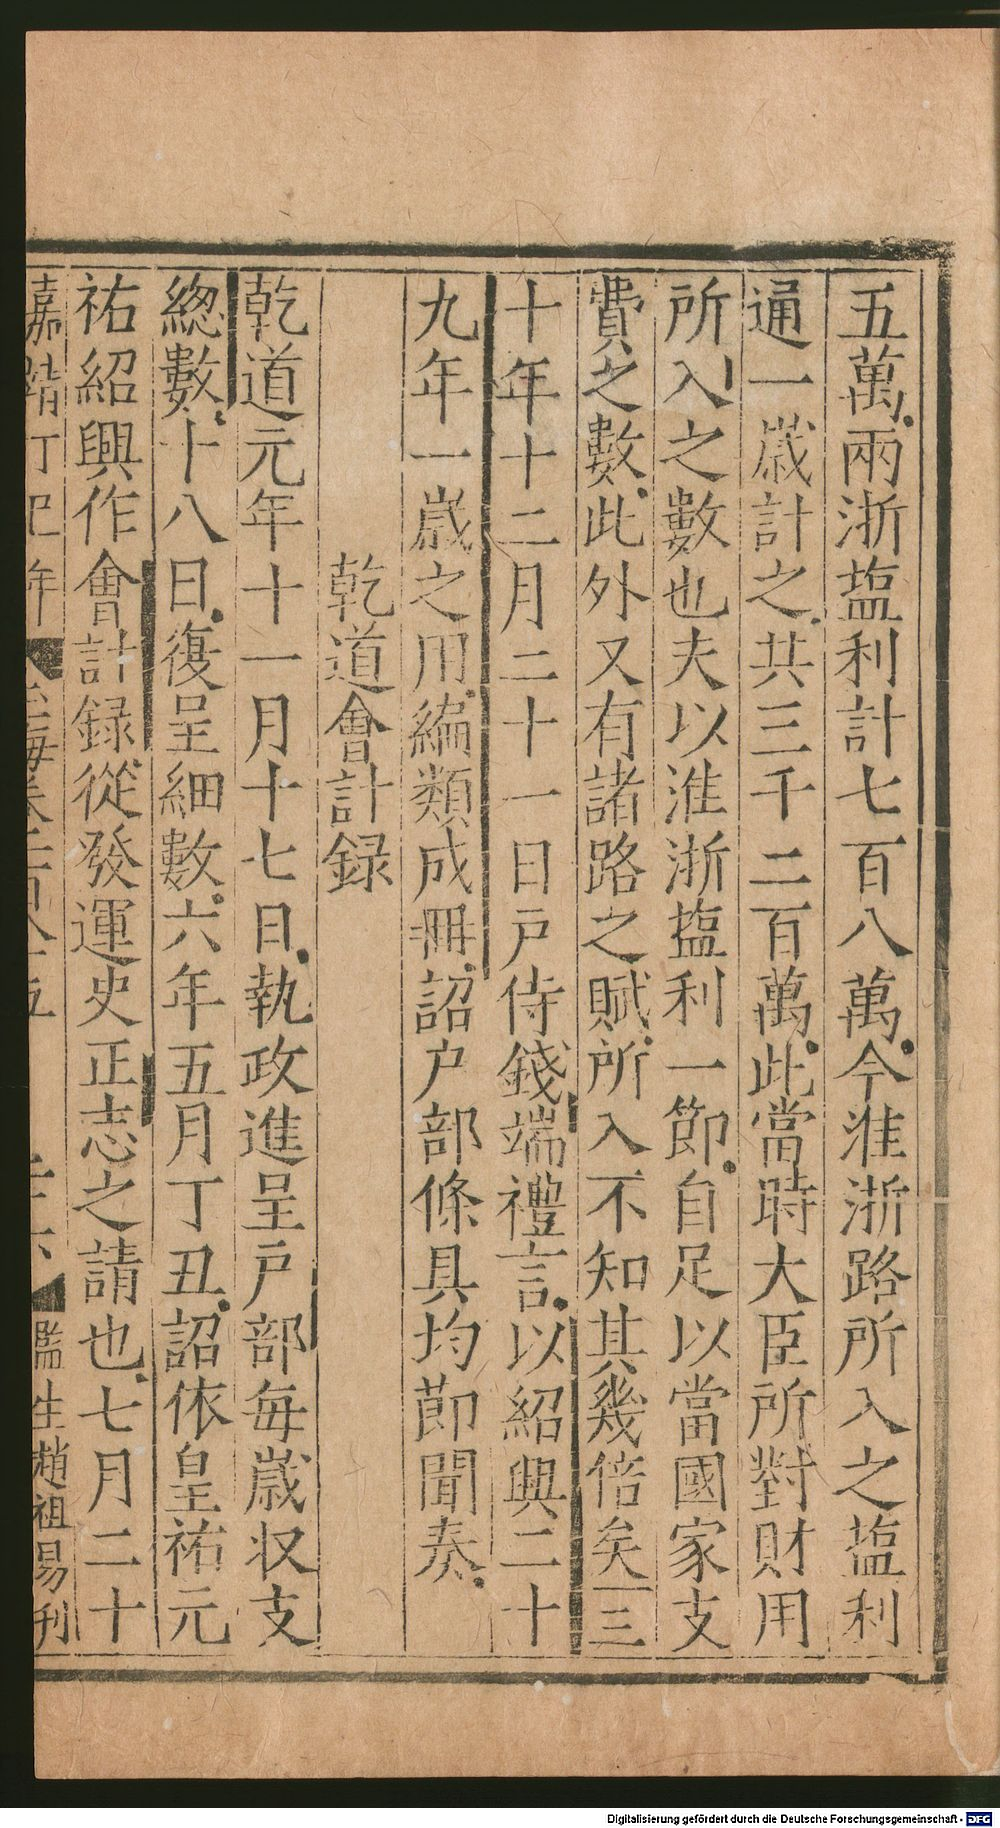 五萬兩浙塩利計七百八萬今淮浙路所入之塩利
通一歳計之共三千二百萬此當時大臣所對財用
所入之數也夫以淮浙塩利一節自足以當國家支
費之數此外又有諸路之賦所入不知其幾倍矣三
十年十二月二十一日戸侍錢端禮言以紹興二十
九年一嵗之用編類成冊詔户部條具均節聞奏
乾道會計録
乾道元年十一月十七日執政進呈戸部每歳収支
總數十八日復呈細數六年五月丁丑詔依皇祐元
祐紹興作會計録從發運史正志之請也七月二十
嘉靖丁巳年 玉海卷一百八十五 三十六 監生趙祖易刊
Digitalisierung gefördert durch die Deutsche Forschungsgemeinschaft - DFG